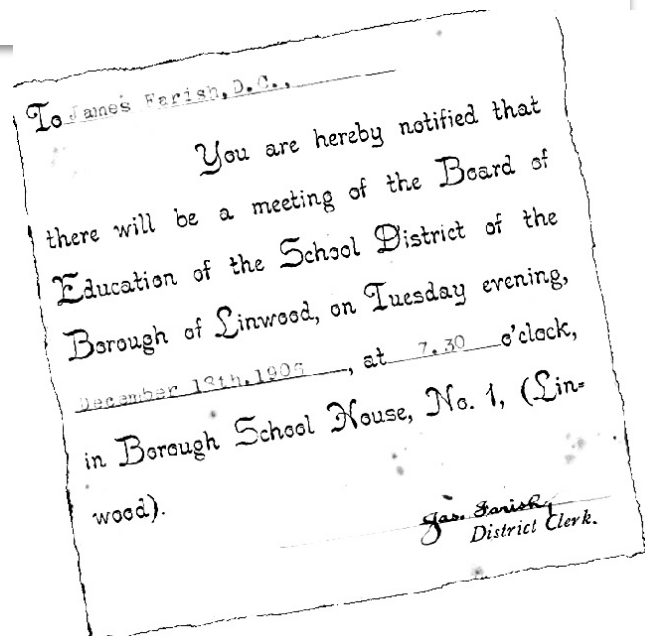 To James Farish, D.C.,
You are hereby notified that
there will be a meeting of the Board of
Education of the School District of the
Borough of Linwood, on Tuesday evening,
December 18th.1906, at 7.30 o'clock,
in Borough School House, No. 1, (Lin=
wood).
Jas. Farish,
District Clerk.